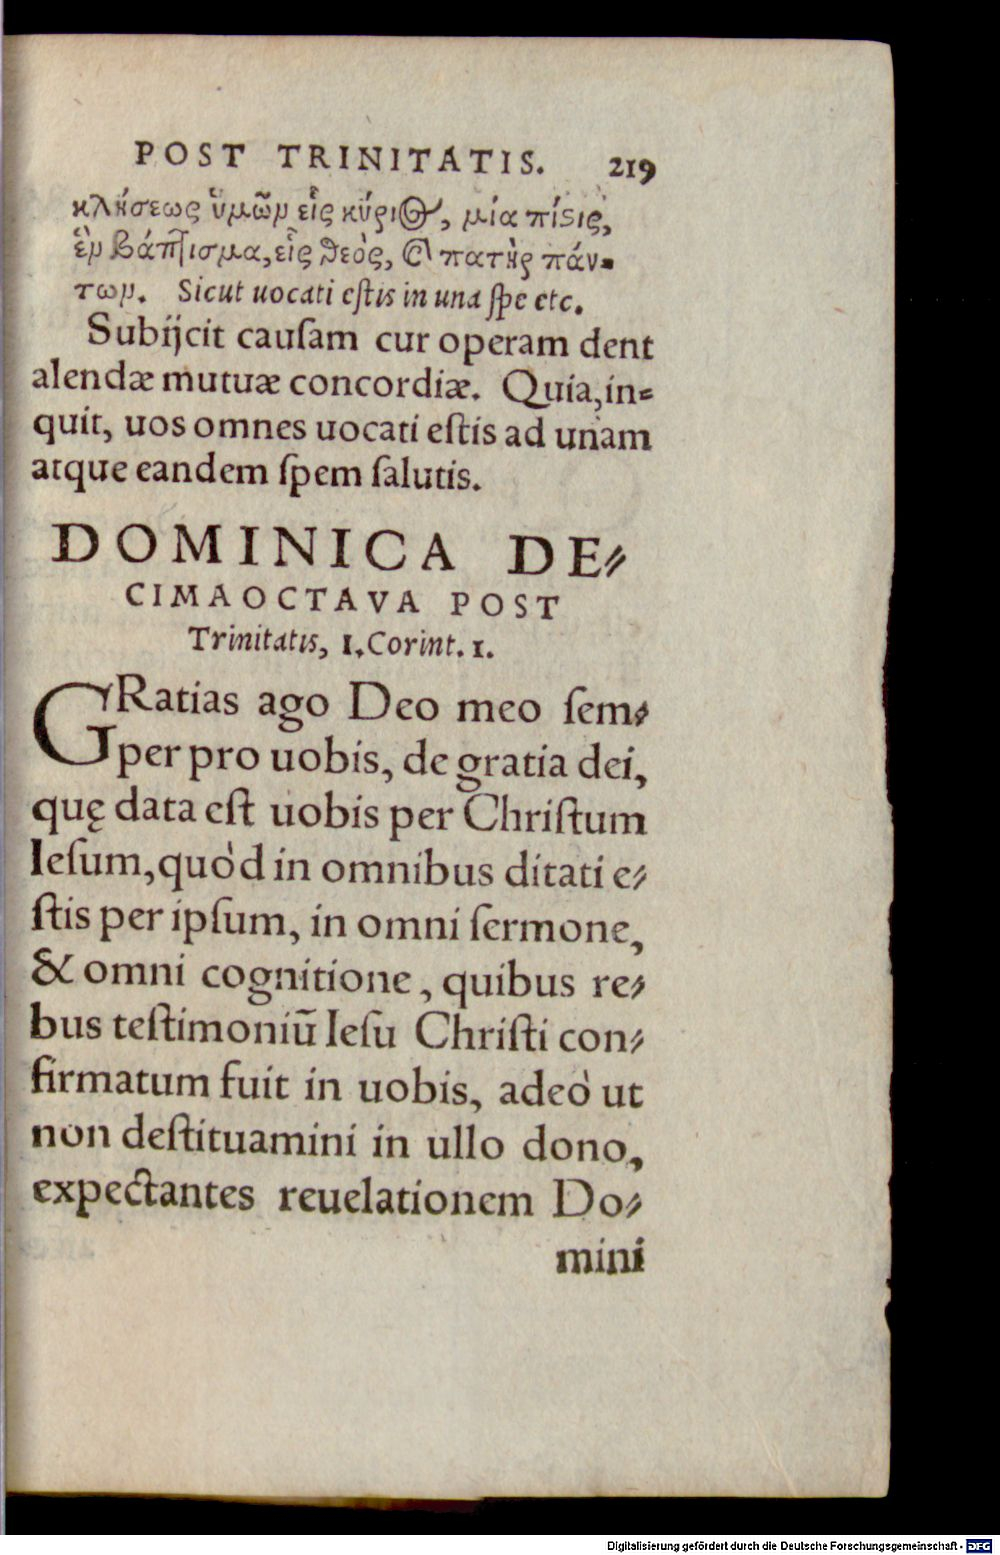 POST TRINITATIS. 219
κλήσεως ὑμῶν εἷς κύριος, μία πίστις,
ἓν βάπτισμα, εἷς θεὸς, καὶ πατὴρ πάν-
των. Sicut uocati estis in una spe etc.
Subijcit cauſam cur operam dent
alendæ mutuæ concordiæ. Quia, in=
quit, uos omnes uocati eſtis ad unam
atque eandem ſpem ſalutis.
DOMINICA DE⸗
CIMAOCTAVA POST
Trinitatis, 1. Corint. 1.
GRatias ago Deo meo ſem⸗
per pro uobis, de gratia dei,
quę data eſt uobis per Chriſtum
Ieſum, quòd in omnibus ditati e⸗
ſtis per ipſum, in omni ſermone,
& omni cognitione, quibus re⸗
bus teſtimoniũ Ieſu Chriſti con⸗
firmatum fuit in uobis, adeò ut
non deſtituamini in ullo dono,
expectantes reuelationem Do⸗
mini
Digitalisierung gefördert durch die Deutsche Forschungsgemeinschaft - DFG